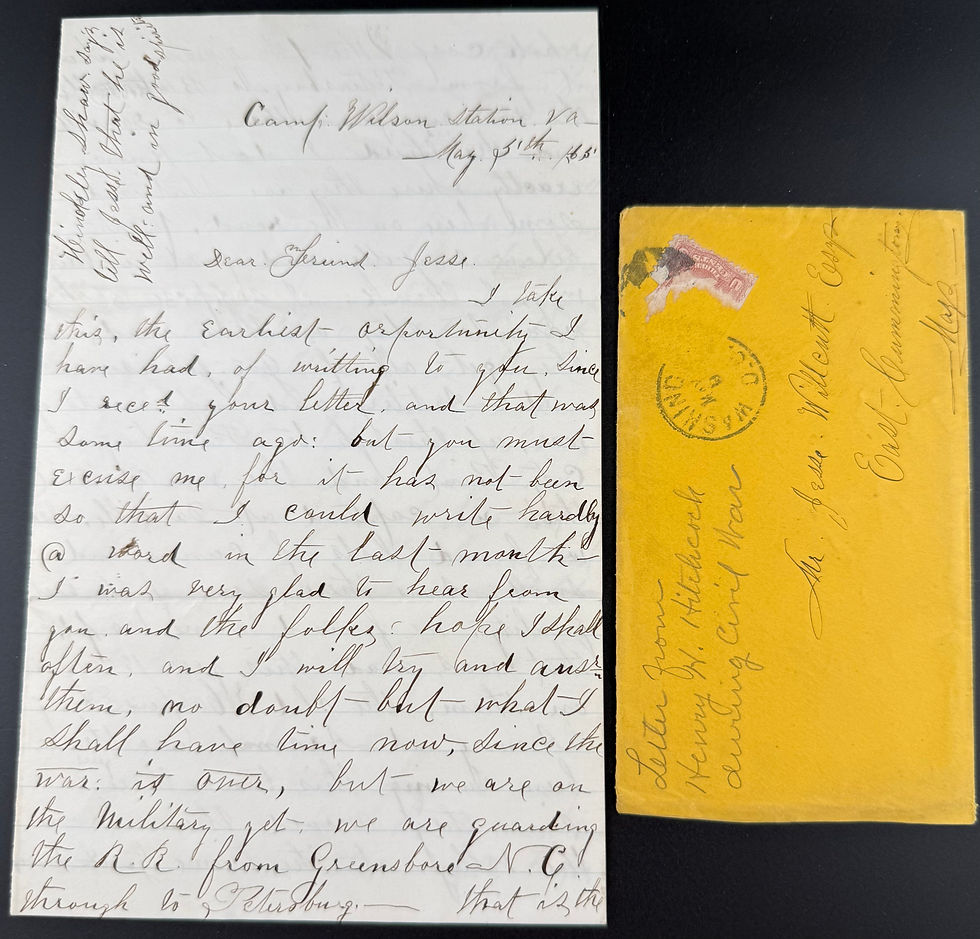 Hinckley Shaw says
tell Jesse that he is
well and in good
Camp. Wilson Station. Va
May. 5th. /65
Dear. Friend. Jesse.
I take
this, the earliest orportunity I
have had, of writting to you. since
I recd your letter. and that was
some time ago: but you must
excuse me. for it has not been
so that I could write hardly
a word in the last month
I was very glad to hear from
you. and the folks: hope I shall
often, and I will try and ansr
them, no doubt but what I
shall have time now, since the
war: is over, but we are on
the Military yet. we are guarding
the R. R. from Greensboro N. C.
through to Petersburg. that is the
WASHING D.C.
Mr. Jesse. Willcutt. Esqr
East Cummington.
Mass
Letter from
Henry H. Hitchcock
during Civil War